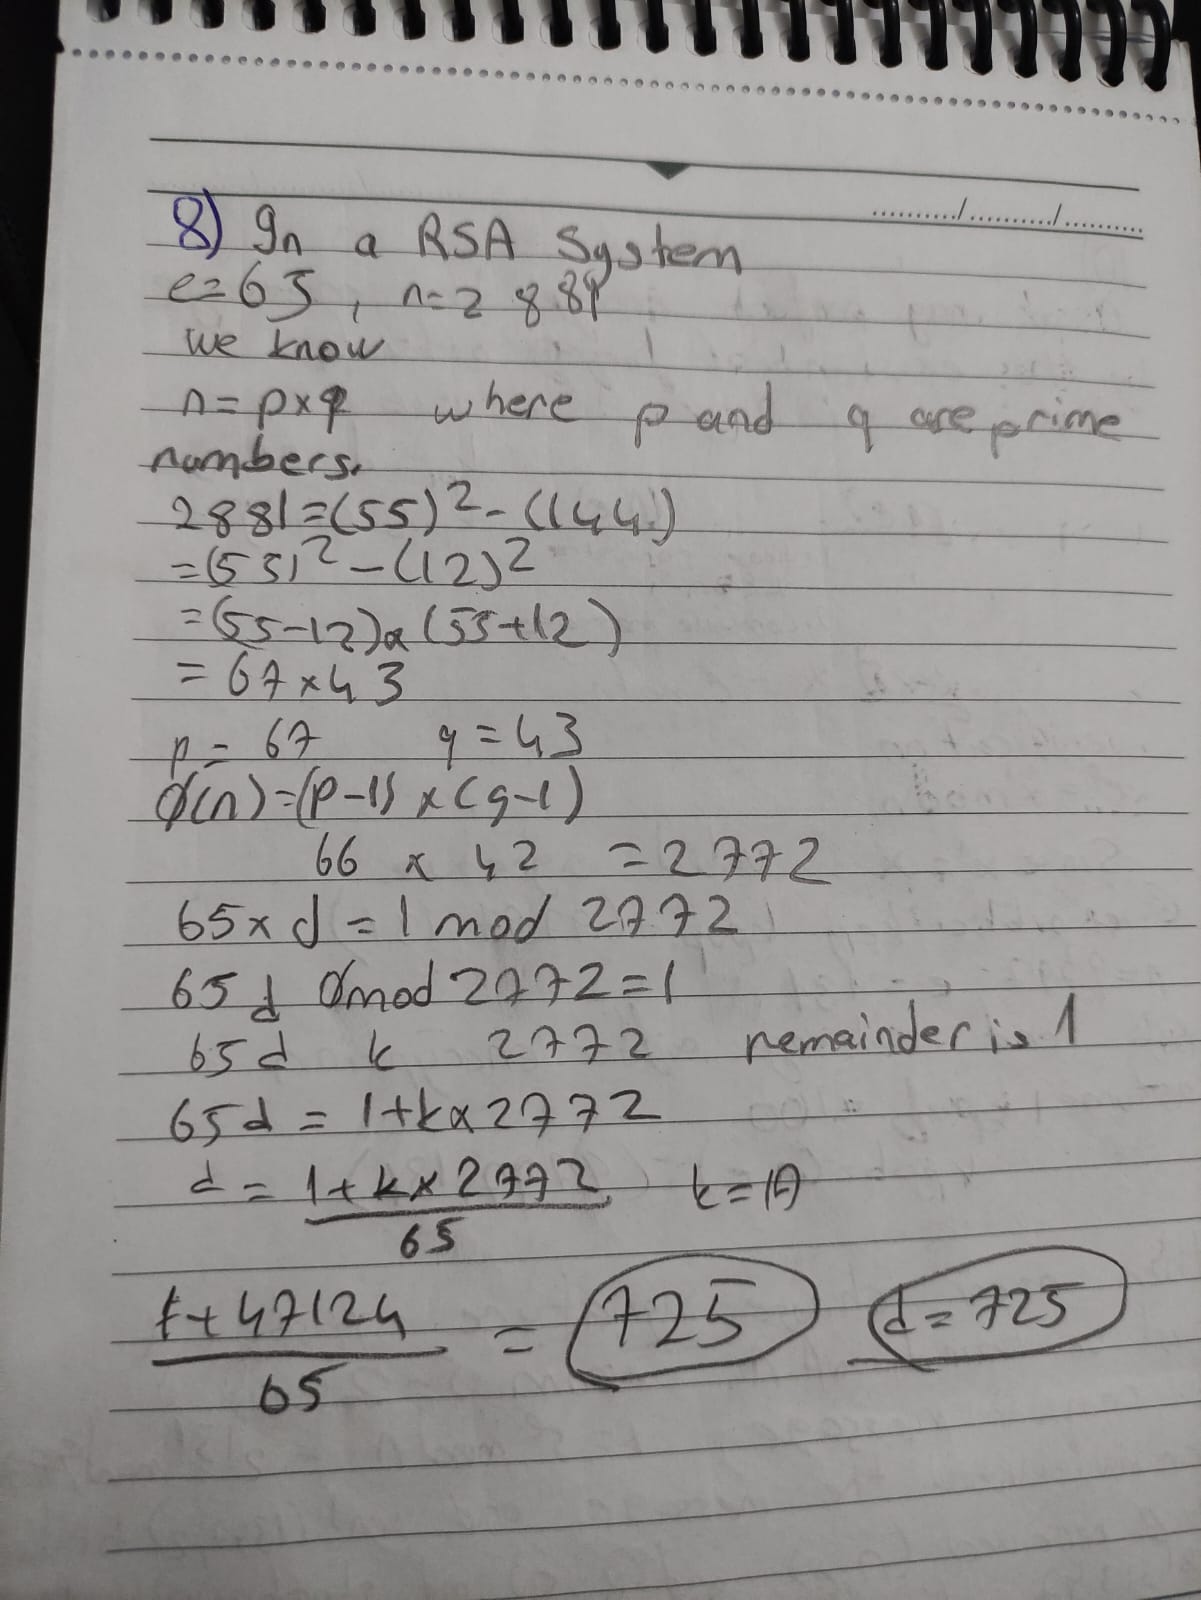 8) In a RSA System
e=65, n=2881
we know
n=p×q where p and q are prime
numbers.
2881=(55)²-(144)
=(55)²-(12)²
=(55-12)x(55+12)
=67×43
p=67 q=43
Ø(n)=(p-1)×(q-1)
66 x 42 =2772
65×d=1 mod 2772
65d mod 2772=1
65d k 2772 remainder is 1
65d=1+kx2772
d=1+k×2772 k=17
65
1+47124 = 725 d=725
65